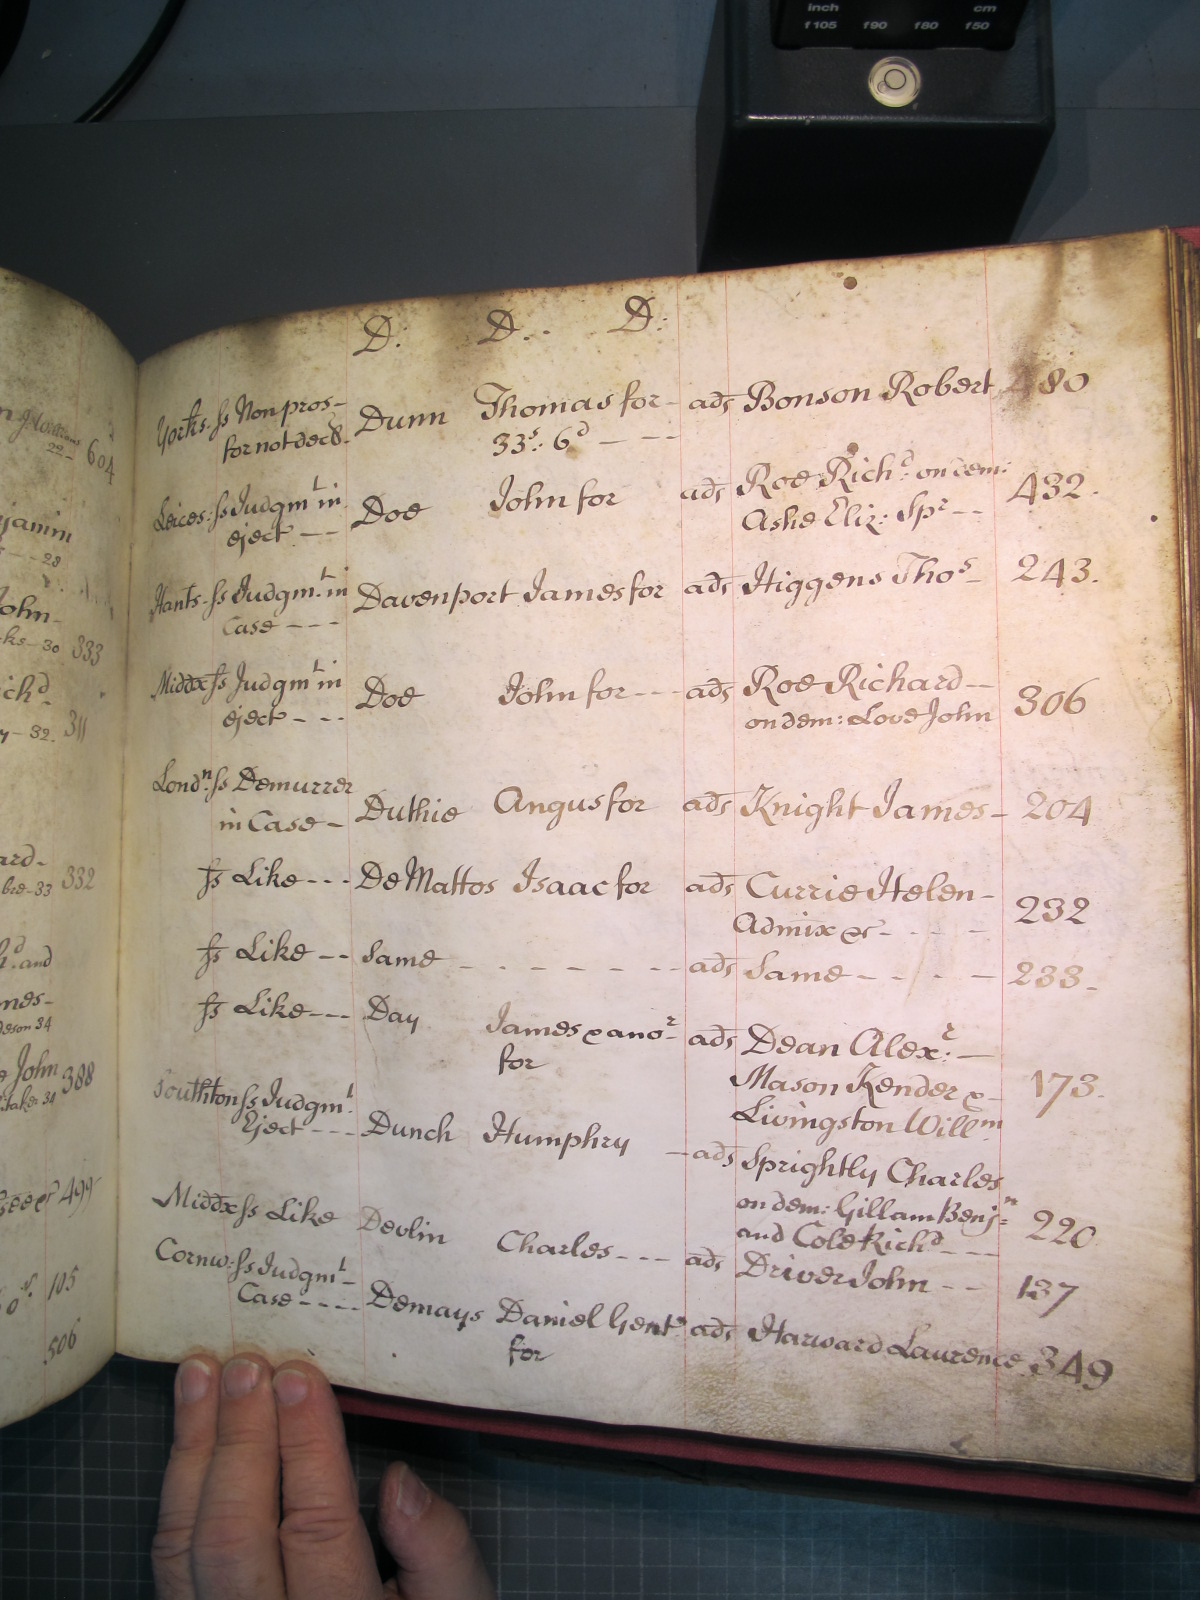 inch cm
f105 f90 f80 f50
D: D. . D:
Yorks. ss Non pros— Dunn Thomas for - ads Bonson Robert 480
for not decl̃. 33s: 6d — ---
Leices: ss Judgmt in Doe John for ads Roe Richd: on dem: 432.
eject — -- Ashe Eliz: Spr --
Hants. ss Judgm:t in Davenport James for ads Higgens Thos— 243.
Case ---
Middx ss Judgmt in Doe John for --- ads Roe Richard — 306
eject - -- on dem: Love John
Londn. ss Demurrer Duthie Angus for ads Knight James - 204
in Case —
ss Like --- De Mattos Isaac for ads Currie Helen - 232
Admix &c - - - -
ss Like -- Same - - - - - -- ads Same - - - - 233.
ss Like --- Day James & anor— ads Dean Alexr: — 173.
for Mason Kender &
Livingston Willm
Southton ss Judgmt: Dunch Humphry — ads Sprightly Charles 220
Eject --- on dem: Gillam Benjn=
and Cole Richd —
Middx ss Like Devlin Charles --- ads Driver John -- 137
Cornw: ss Judgmt— Demays Daniel Gent ads Harward Laurence 349
Case ---- for
604
jamin
28
John-
30 333
ichd.
32. 311
ard-
33 332
and
mes-
34
John 388
34
499
105
506